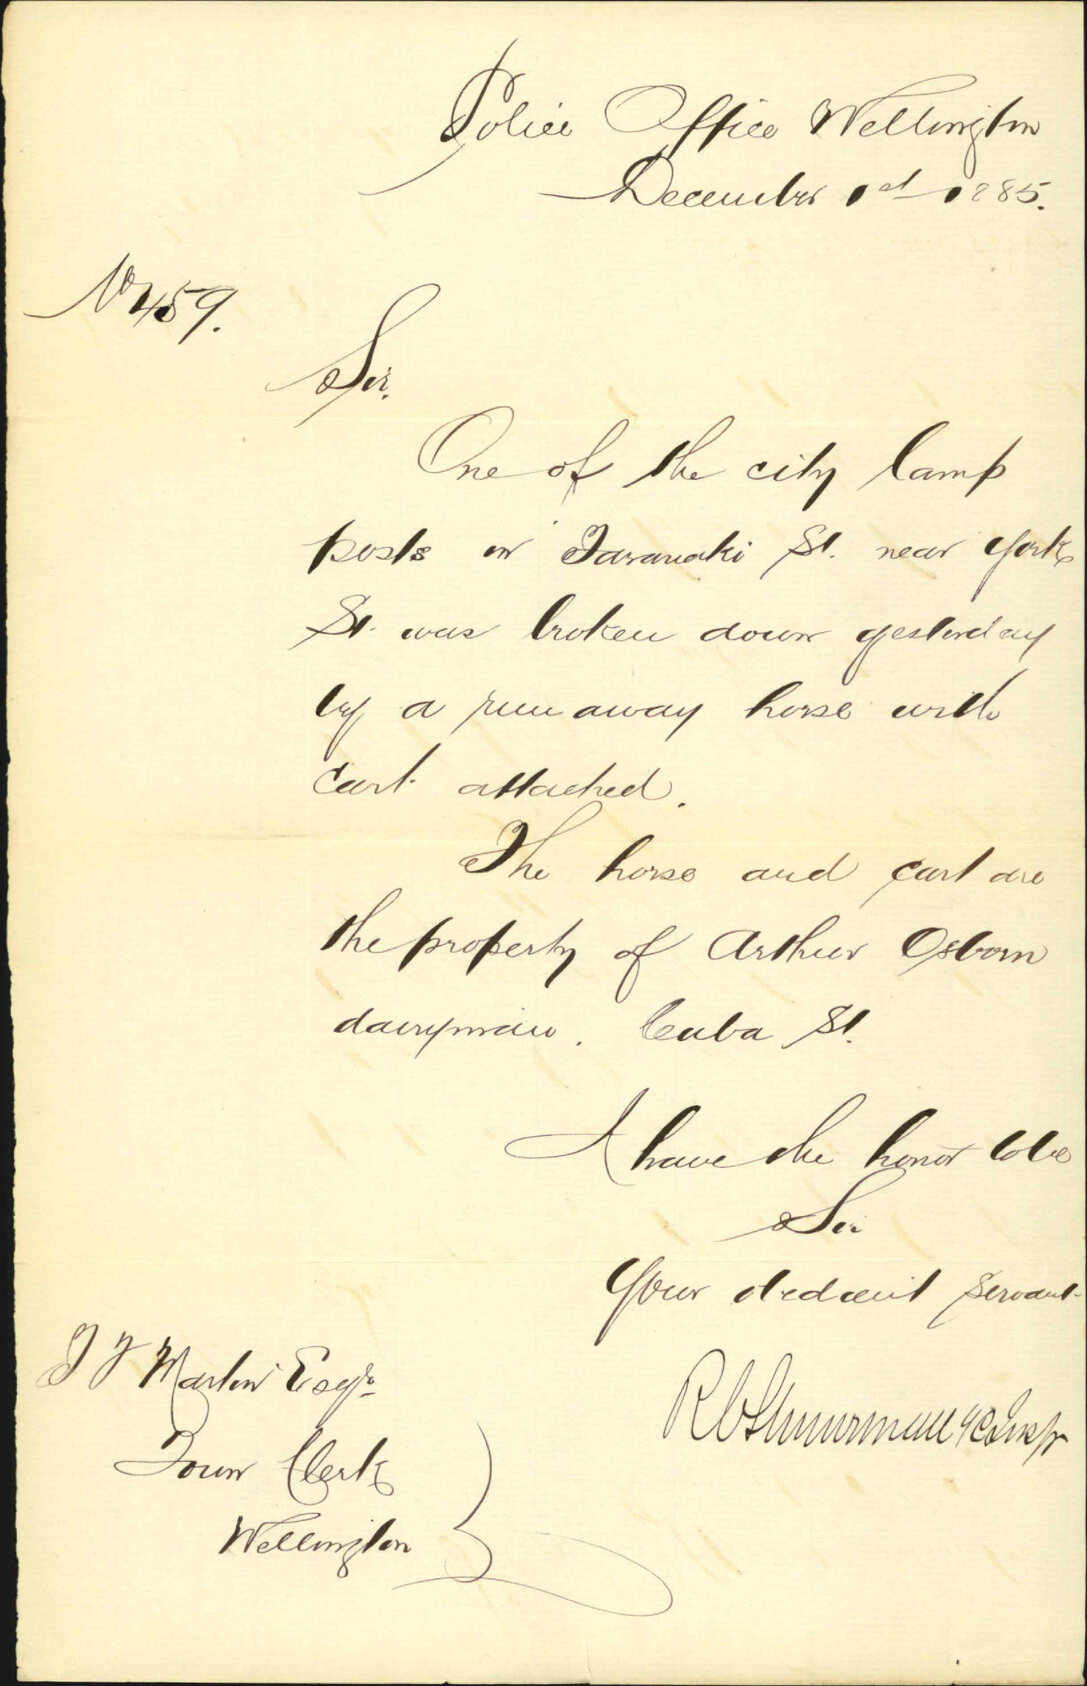 Police Office Wellington
December 1st 1885.
No 459.
Sir.
One of the city lamp
posts in Taranaki St. near York
St. was broken down yesterday
by a runaway horse with
cart attached.
The horse and cart are
the property of Arthur Osborn
dairyman. Cuba St.
I have the honor to be
Sir
Your obedient servant
R
J F Martin Esqr
Town Clerk
Wellington